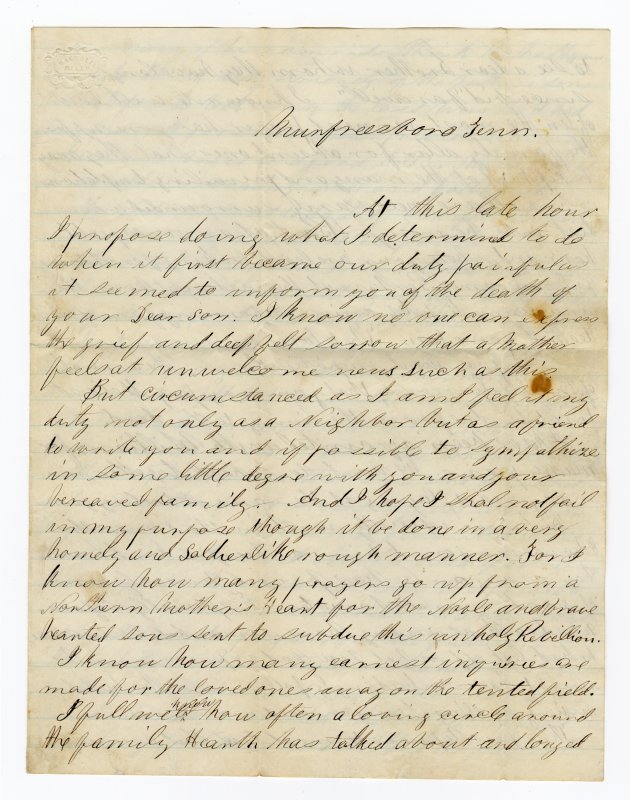 Murfreesboro Tenn.
At this late hour
I propose doing what I determined to do
when it first became our duty painful as
it seemed to inform you of the death of
your Dear Son. I know no one can express
the grief and deep felt sorrow that a Mother
feels at unwelcome news such as this.
But circumstanced as I am I feel it my
duty not only as a Neighbor but as a friend
to write you and if possible to Sympathize
in some little degre with you and your
bereaved family. And I hope I shal not fail
in my purpose though it be done in a very
homely and Soldierlike rough manner. For I
know how many prayers go up from a
Northern Mother's heart for the Noble and brave
hearted sons sent to subdue this unholy Rebellion.
I know how many earnest inquiries are
made for the loved ones away on the tented field.
I full well know how often a loving circle around
the family Hearth has talked about and longed